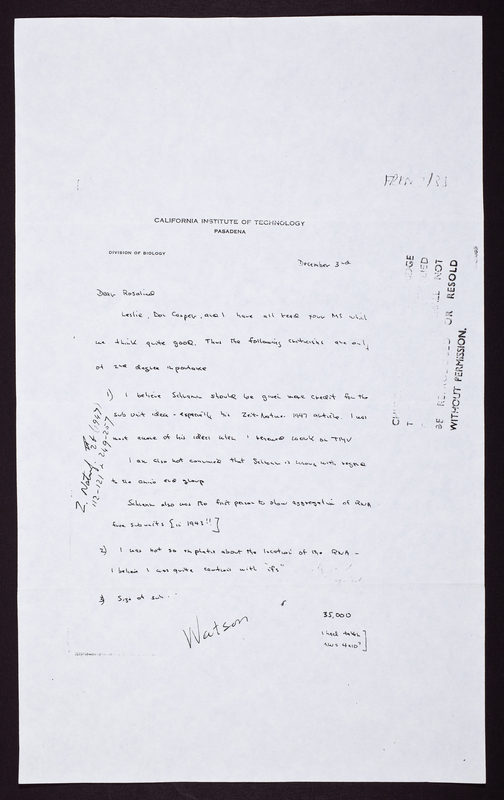 FRKN 2/31
CALIFORNIA INSTITUTE OF TECHNOLOGY
PASADENA
DIVISION OF BIOLOGY
December 3rd
Dear Rosalind
Leslie, Don Caspar, and I have all read your MS which
we think quite good. Thus the following criticisms are only
of 2nd degree importance
1) I believe Schramm should be given more credit for the
sub unit idea - especially his Zeit. Natur. 1947 article. I was
most aware of his ideas when I started work on TMV
I am also not convinced that Schramm is wrong with regard
to the amino end group
Schramm also was the first person to show aggregation of RNA
free subunits [in 1943!!]
Z. Naturf. 2b (1947)
112-121 & 249-257
2) I was not so emphatic about the location of the RNA -
I believe I was quite cautious with "ifs"
3) Size of sub
35,000
Watson
BE OR RESOLD
WITHOUT PERMISSION.
NOT